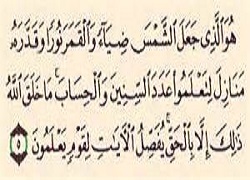 هُوَ الَّذِي جَعَلَ الشَّمْسَ ضِيَاءً وَالْقَمَرَ نُورًا وَقَدَّرَهُ
مَنَازِلَ لِتَعْلَمُوا عَدَدَ السِّنِينَ وَالْحِسَابَ ۚ مَا خَلَقَ اللَّهُ
ذَٰلِكَ إِلَّا بِالْحَقِّ ۚ يُفَصِّلُ الْآيَٰتِ لِقَوْمٍ يَعْلَمُونَ ٥